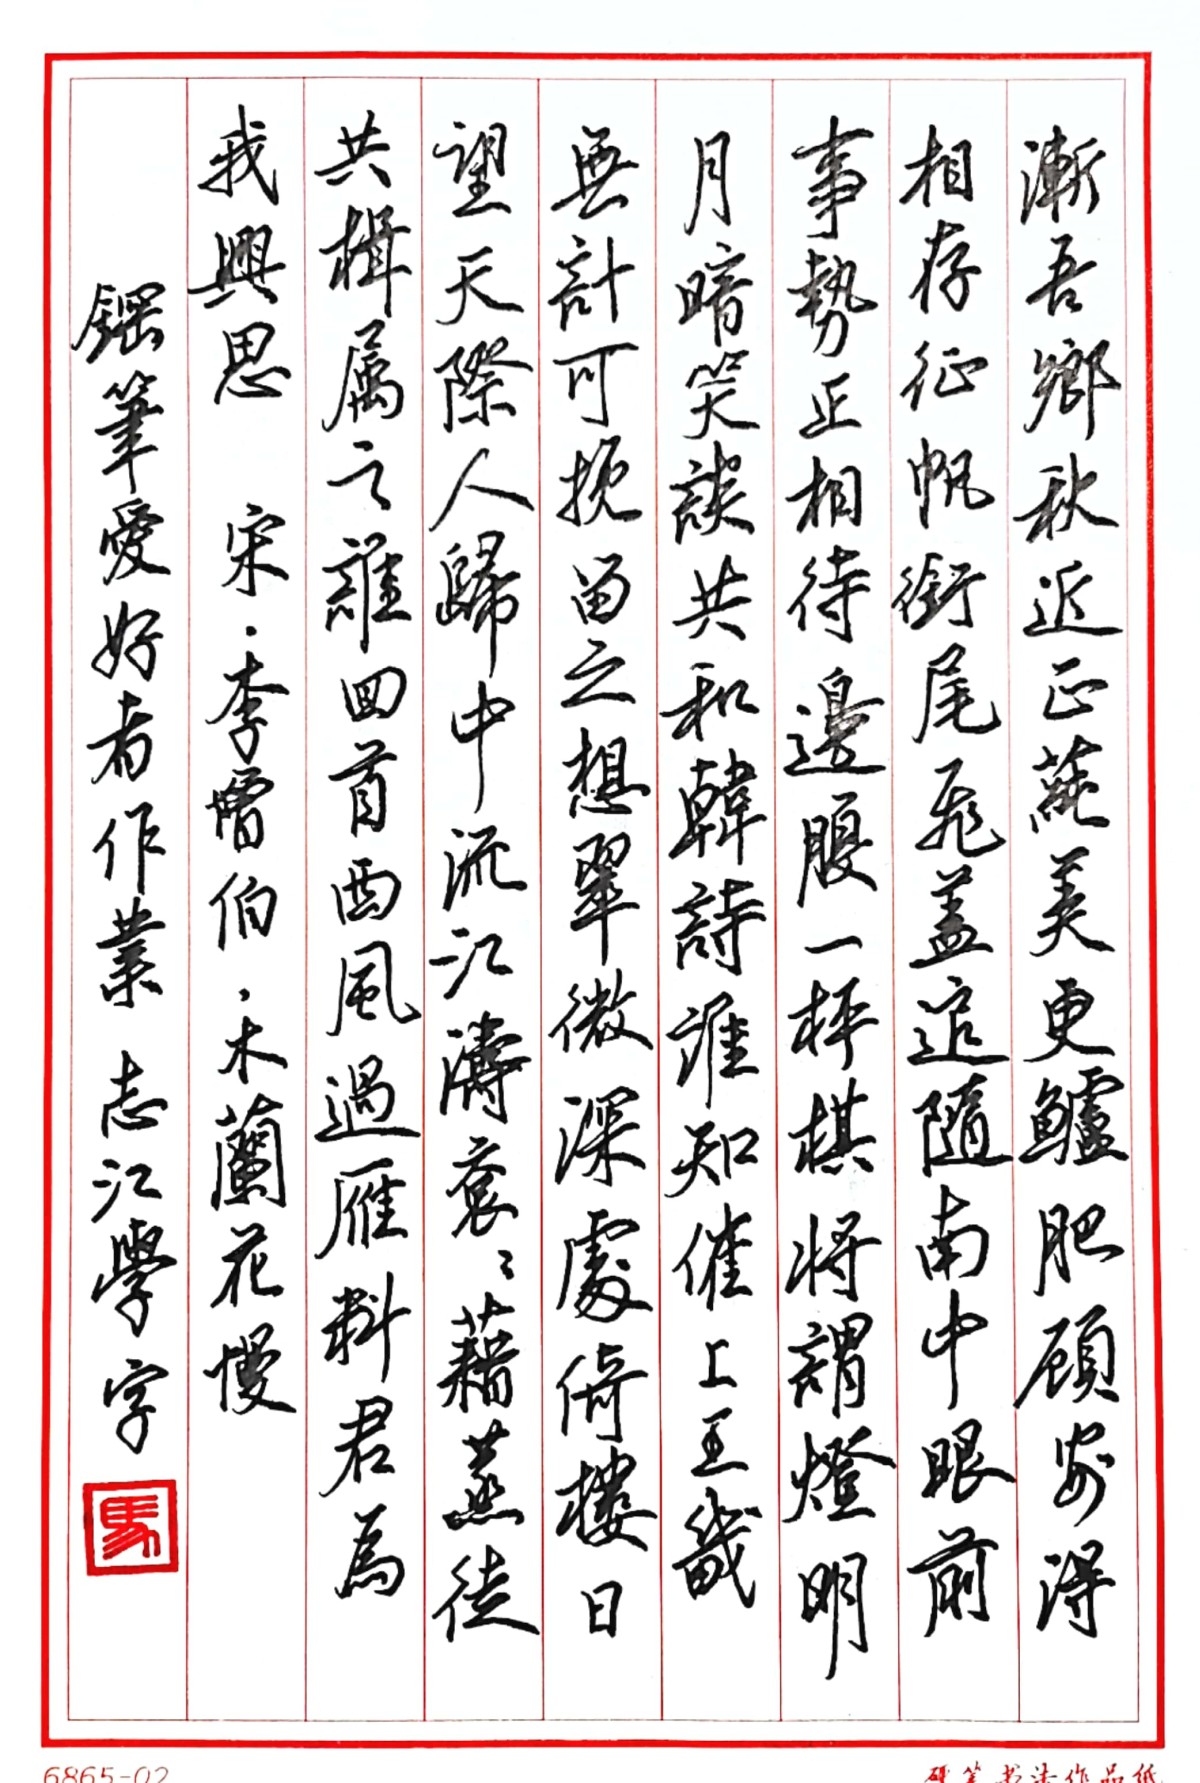 漸吾鄉秋近正蓴美更鱸肥顧安得
相存征帆銜尾飛盖追隨南中眼前
事勢正相待邊腹一枰棋將謂燈明
月暗笑談共和韓詩誰知催上王畿
無計可挽留之想翠微深處倚樓日
望天際人歸中流江濤衮〻藉蒸徒
共楫属之誰回首西風過雁料君為
我興思 宋·李曾伯·木蘭花慢
鋼筆愛好者作業 志江學字
馬
6865-02
硬筆书法作品纸